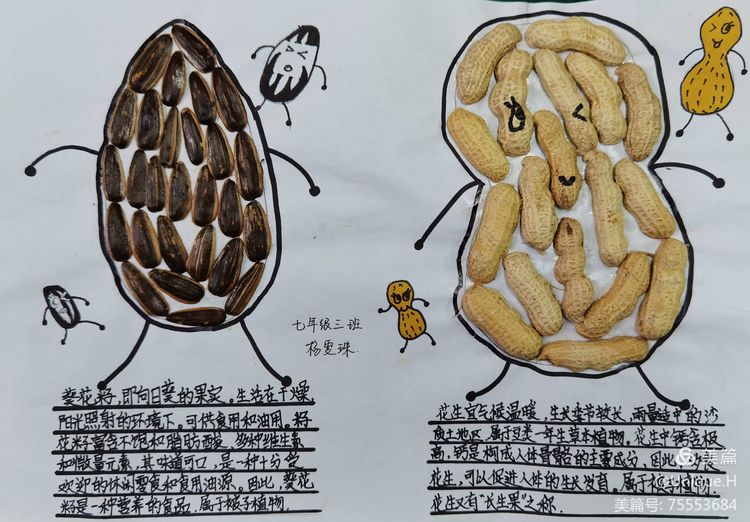 七年级三班
杨雯珠
葵花籽,即向日葵的果实。生活在干燥,
阳光照射的环境下。可供食用和油用。籽
花籽富含不饱和脂肪酸,多种维生素
和微量元素,其味道可口,是一种十分受
欢迎的休闲零食和食用油源。因此,葵花
籽是一种营养的食品,属于被子植物。
花生宜气候温暖,生长季节较长,雨量适中的沙
质土地区,属豆类一年生草本植物。花生中钙含极
高,钙是构成人体骨骼的主要成分,因此
花生,可以促进人体的生长发育。属于被子植物。
花生又有“长生果”之称。
美篇
美篇号:75553684